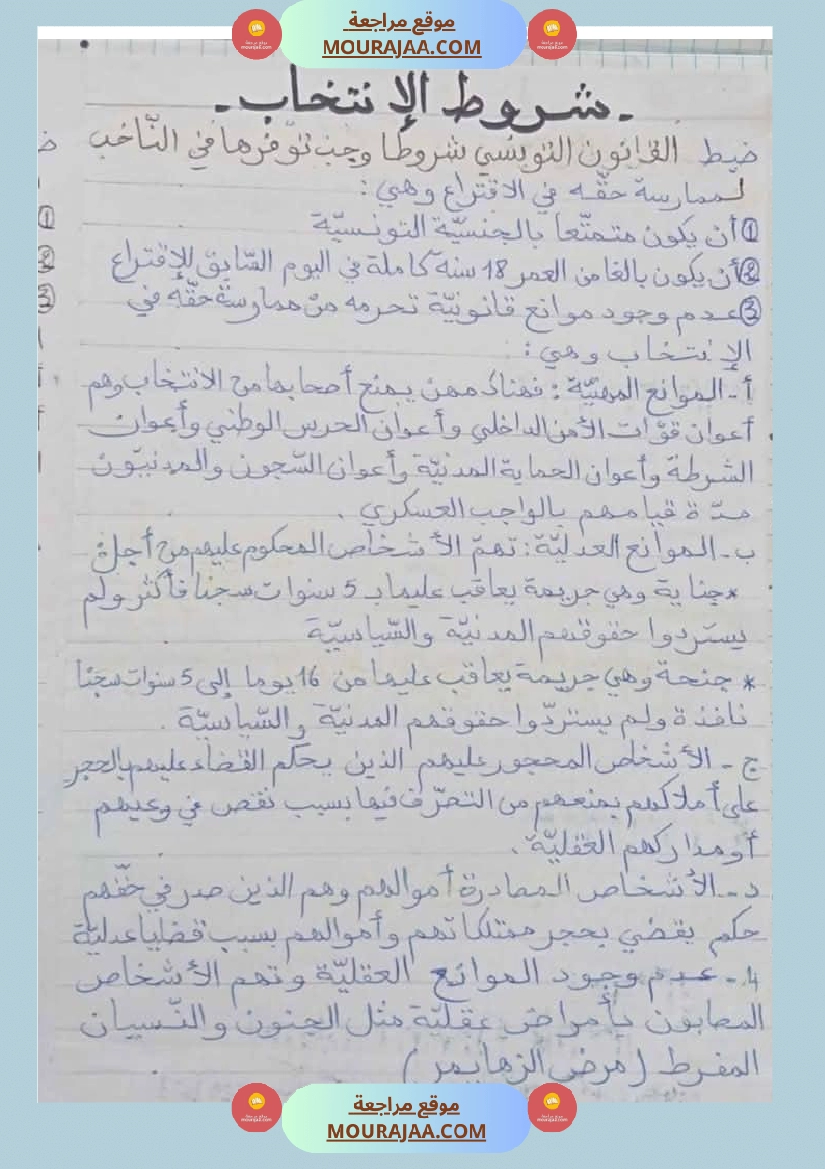 موقع مراجعة
MOURAJAA.COM
ـ شروط الإنتخاب ـ
ضبط القانون التونسي شروطا وجب توفرها في النّاخب
لممارسة حقّه في الاقتراع وهي :
① أن يكون متمتّعا بالجنسيّة التونسيّة
② أن يكون بالغا من العمر 18 سنة كاملة في اليوم السّابق للإقتراع
③ عدم وجود موانع قانونيّة تحرمه من ممارسة حقّه في
الإنتخاب وهي :
أ ـ الموانع المهنيّة : فهناك ممن يمنع أصحابها من الانتخاب وهم
أعوان قوّات الأمن الداخلي وأعوان الحرس الوطني وأعوان
الشرطة وأعوان الحماية المدنيّة وأعوان السّجون والمدنيّون
مدّة قيامهم بالواجب العسكري .
ب ـ الموانع العدليّة : تهمّ الأشخاص المحكوم عليهم من أجل
* جناية وهي جريمة يعاقب عليها بـ 5 سنوات سجنا فأكثر ولم
يستردوا حقوقهم المدنيّة والسّياسيّة
* جنحة وهي جريمة يعاقب عليها من 16 يوما إلى 5 سنوات سجنا
نافذة ولم يستردّوا حقوقهم المدنيّة والسّياسيّة .
ج ـ الأشخاص المحجور عليهم الذين يحكم القضاء عليهم بالحجر
على أملاكهم بمنعهم من التصرّف فيها بسبب نقص في وعيهم
أو مداركهم العقليّة .
د ـ الأشخاص المصادرة أموالهم وهم الذين صدر في حقّهم
حكم يقضي بحجر ممتلكاتهم وأموالهم بسبب قضايا عدليّة
4 ـ عدم وجود الموانع العقليّة وتهم الأشخاص
المصابون بأمراض عقليّة مثل الجنون والنّسيان
المفرط ( مرض الزهايمر )
موقع مراجعة
MOURAJAA.COM